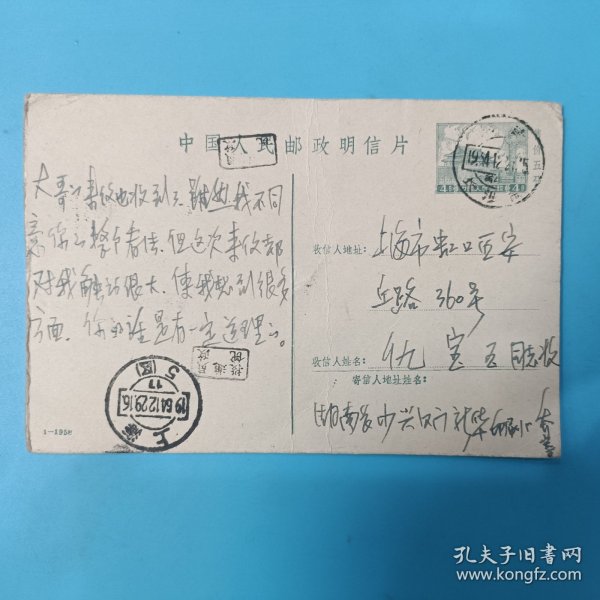 中国人民邮政明信片
大哥：来信也收到了。虽然我不同
意你的整个看法，但这次来信却
对我触动很大，使我想到很多
方面。你的话是有一定道理的。
收信人地址：上海市虹口区安
丘路360号
收信人姓名：仇宝 同志收
寄信人地址姓名：
湖南长沙兴汉门
上海
1964.12.29.16
17
5(区)
1—1958
孔夫子旧书网
www.kongfz.com